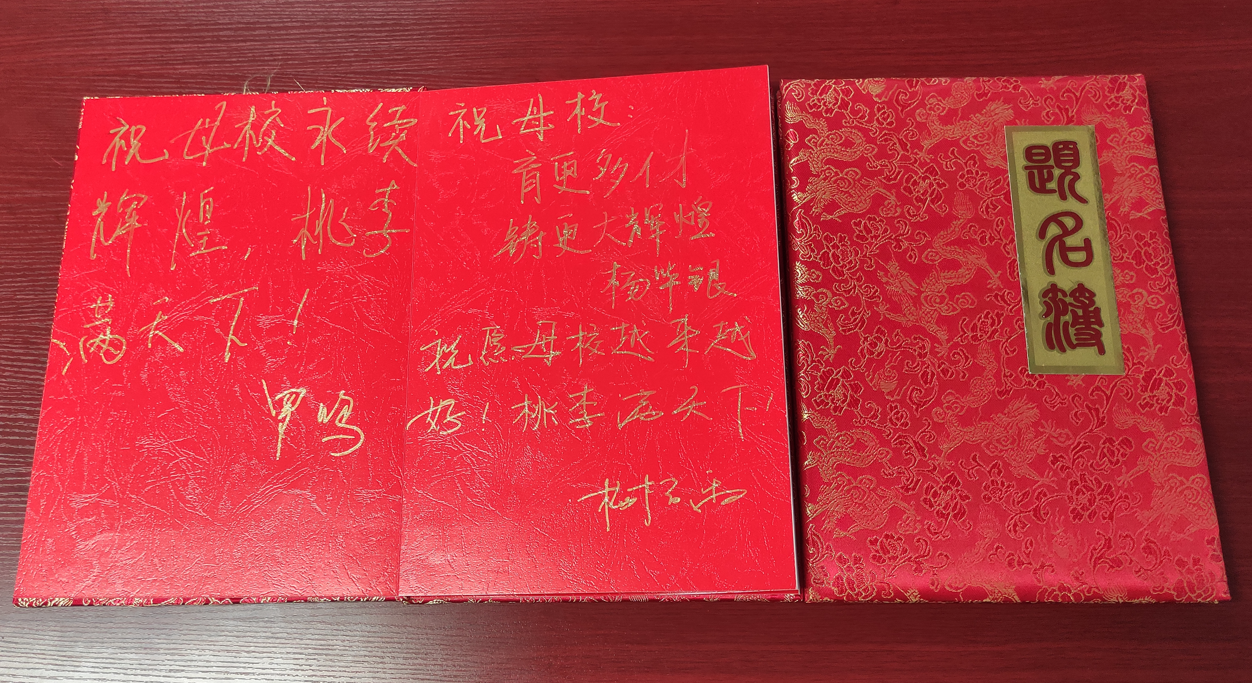 祝母校永续
辉煌,桃李
满天下!
罗鸣
祝母校:
育更多付才
铸更大辉煌
杨华银
祝愿母校越来越
好!桃李满天下!
題名簿